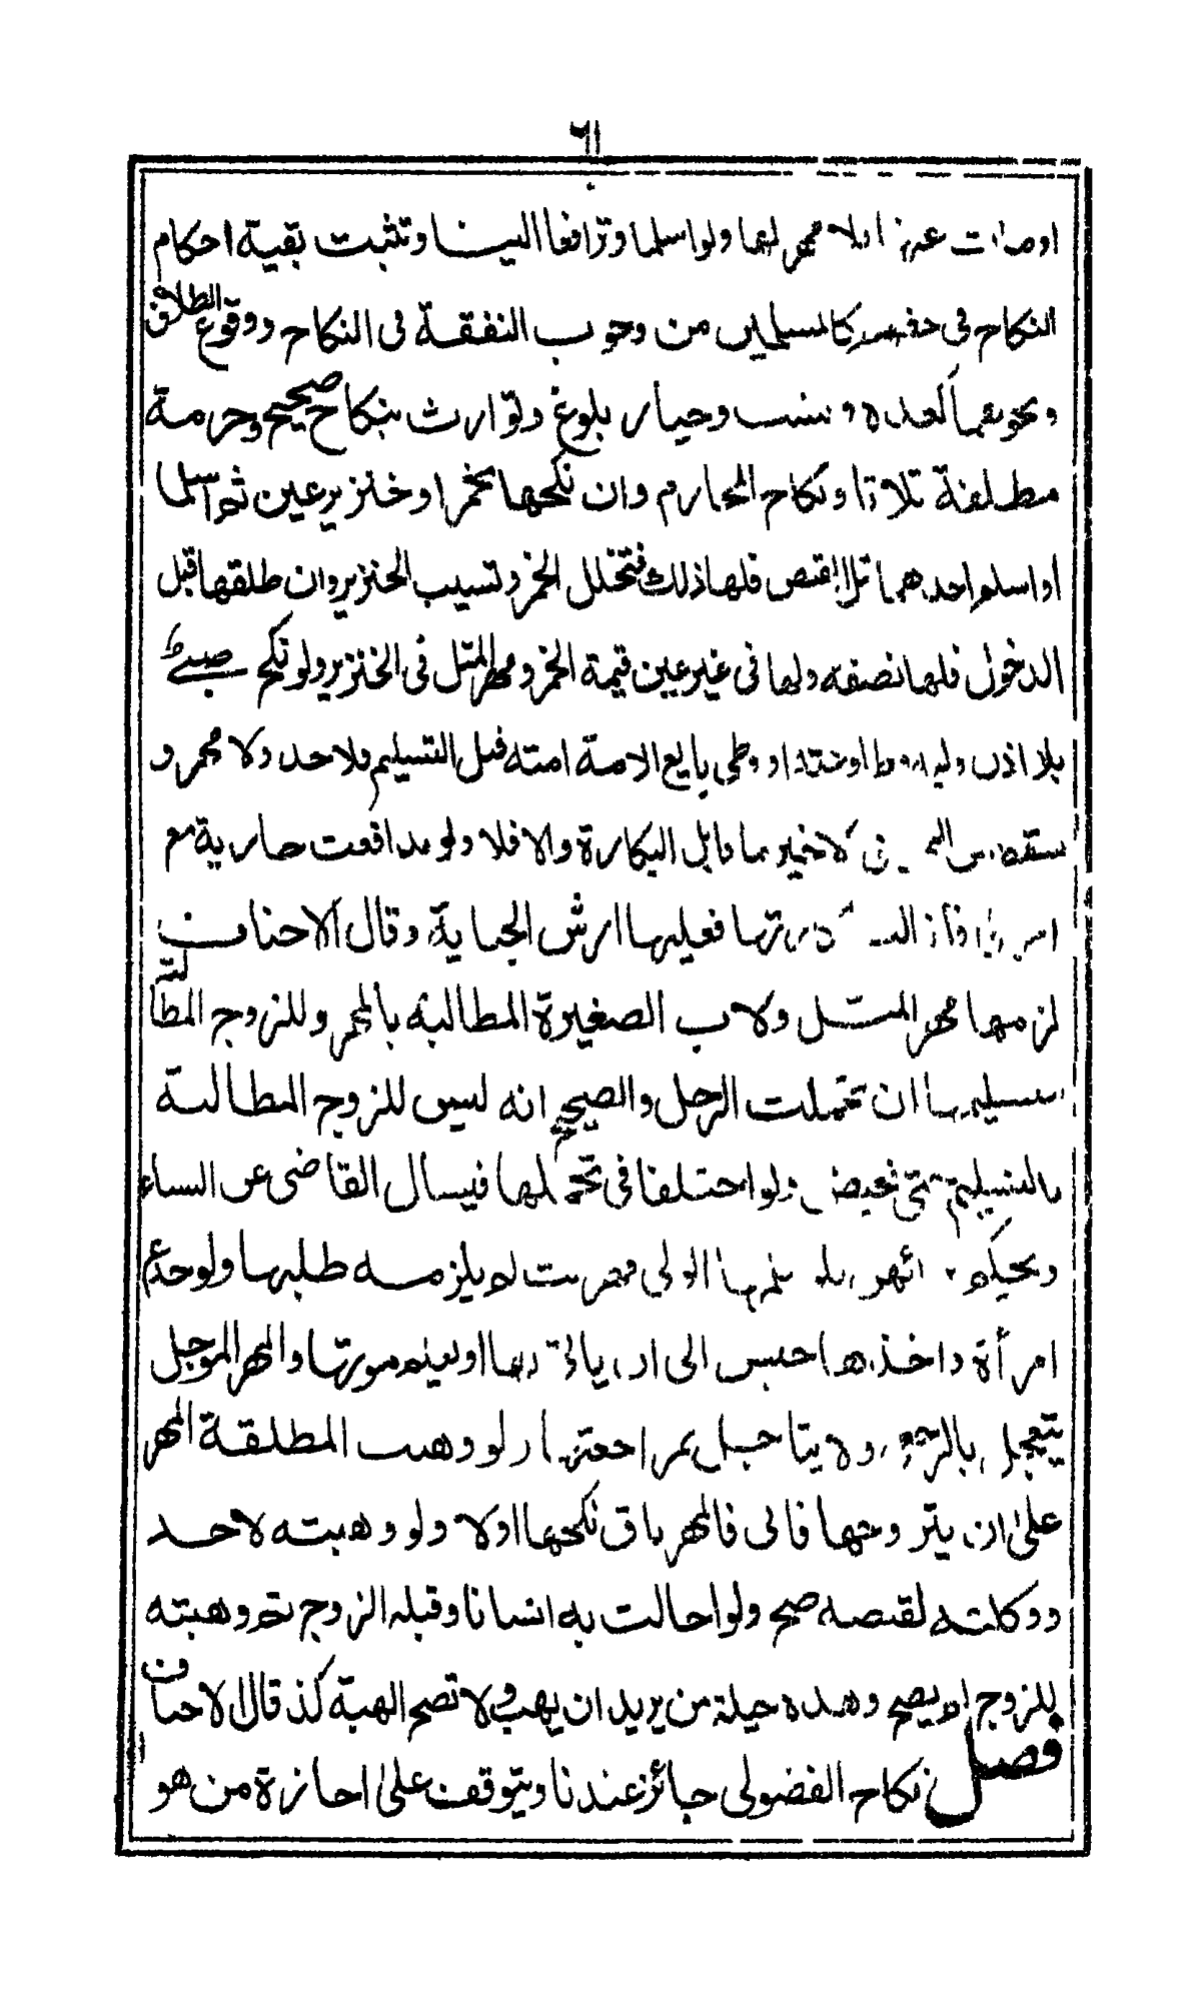 ٦١
او مات عنها فلا مهر لها ولو اسلما وترافعا الينا وتثبت بقية احكام
النكاح فى حقهم كالمسلمين من وجوب النفقة فى النكاح ووقوع الطلاق
ونحوهما كعدة ونسب وخيار بلوغ وتوارث بنكاح صحيح وحرمة
مطلقة ثلاثا ونكاح المحارم وان نكحها بخمر او خنزير عين ثم اسلما
او اسلم احدهما قبل القبض فلها ذلك فتخلل الخمر وتسيب الخنزير وان طلقها قبل
الدخول فلها نصفه ولها فى غير عين قيمة الخمر ومهر المثل فى الخنزير ولو نكح صبى
بلا اذن وليه ووطى او وطى بايع الامة امته قبل التسليم فلا حد ولا مهر و
فى الاخير ما قابل البكارة والا فلا ولو تدافعت جارية مع
فعليها ارش الجناية وقال الاحناف
لزمها مهر المثل ولاب الصغيرة المطالبة بالمهر وللزوج المطالبة
بتسليمها ان تحملت الرجل والصحيح انه ليس للزوج المطالبة
بالتسليم حتى تحيض ولو اختلفا فى تحملها فيسال القاضى عن النساء
الولى فهربت لم يلزمه طلبها ولو خدع
امرأة واخذها حبس الى ان ياتى بها او يعلم موتها والمهر المؤجل
يتعجل بالرجعة ولا يتاجل بمراجعتها ولو وهبت المطلقة المهر
على ان يتزوجها فابى فالمهر باق نكحها او لا ولو وهبته لاحد
ووكلته لقبضه صح ولو احالت به انسانا وقبله الزوج ثم وهبته
للزوج لم يصح وهذه حيلة من يريد ان يهب ولا تصح الهبة كذ قال الاحناف
فصل نكاح الفضولى جائز عندنا ويتوقف على اجازة من هو